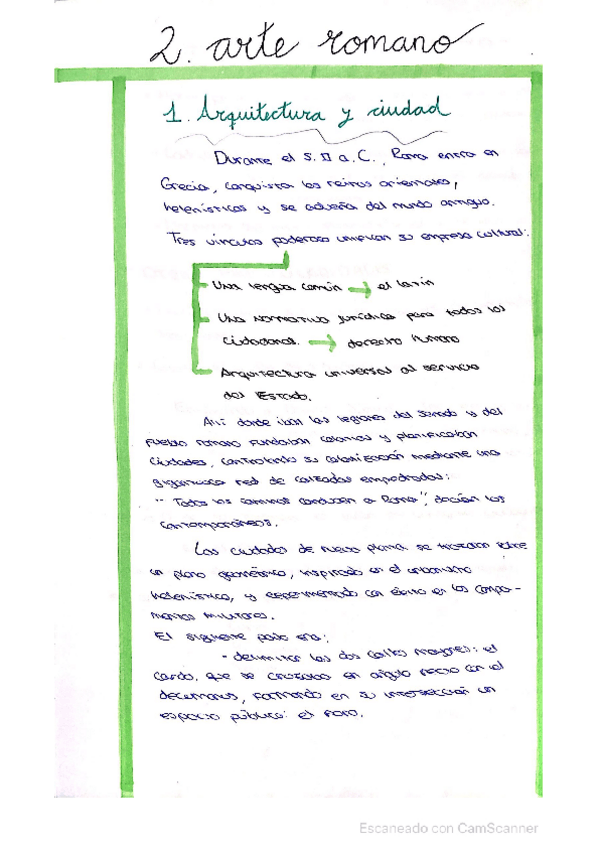 2. arte romano
1. Arquitectura y ciudad
Durante el S. II a. C., Roma entra en
Grecia, conquista los reinos orientales,
helenísticos y se adueña del mundo antiguo.
Tres vínculos poderosos unifican su empresa cultural:
- Una lengua común → el latín
- Una normativa jurídica para todos los
ciudadanos. → derecho humano
- Arquitectura universal al servicio
del Estado.
Ahí donde iban las legiones del Senado y del
pueblo romano fundaban colonias y planificaban
ciudades, controlando su colonización mediante una
gigantesca red de calzadas empedradas:
"Todos los caminos conducen a Roma", decían los
contemporáneos.
Las ciudades de nueva planta se trazaron sobre
un plano geométrico, inspirado en el urbanismo
helenístico, y experimentado con éxito en los campa-
mentos militares.
El siguiente paso era:
- delimitar las dos calles mayores: el
cardo, que se cruzaba en ángulo recto con el
decumanus, formando en su intersección un
espacio público: el foro.
Escaneado con CamScanner